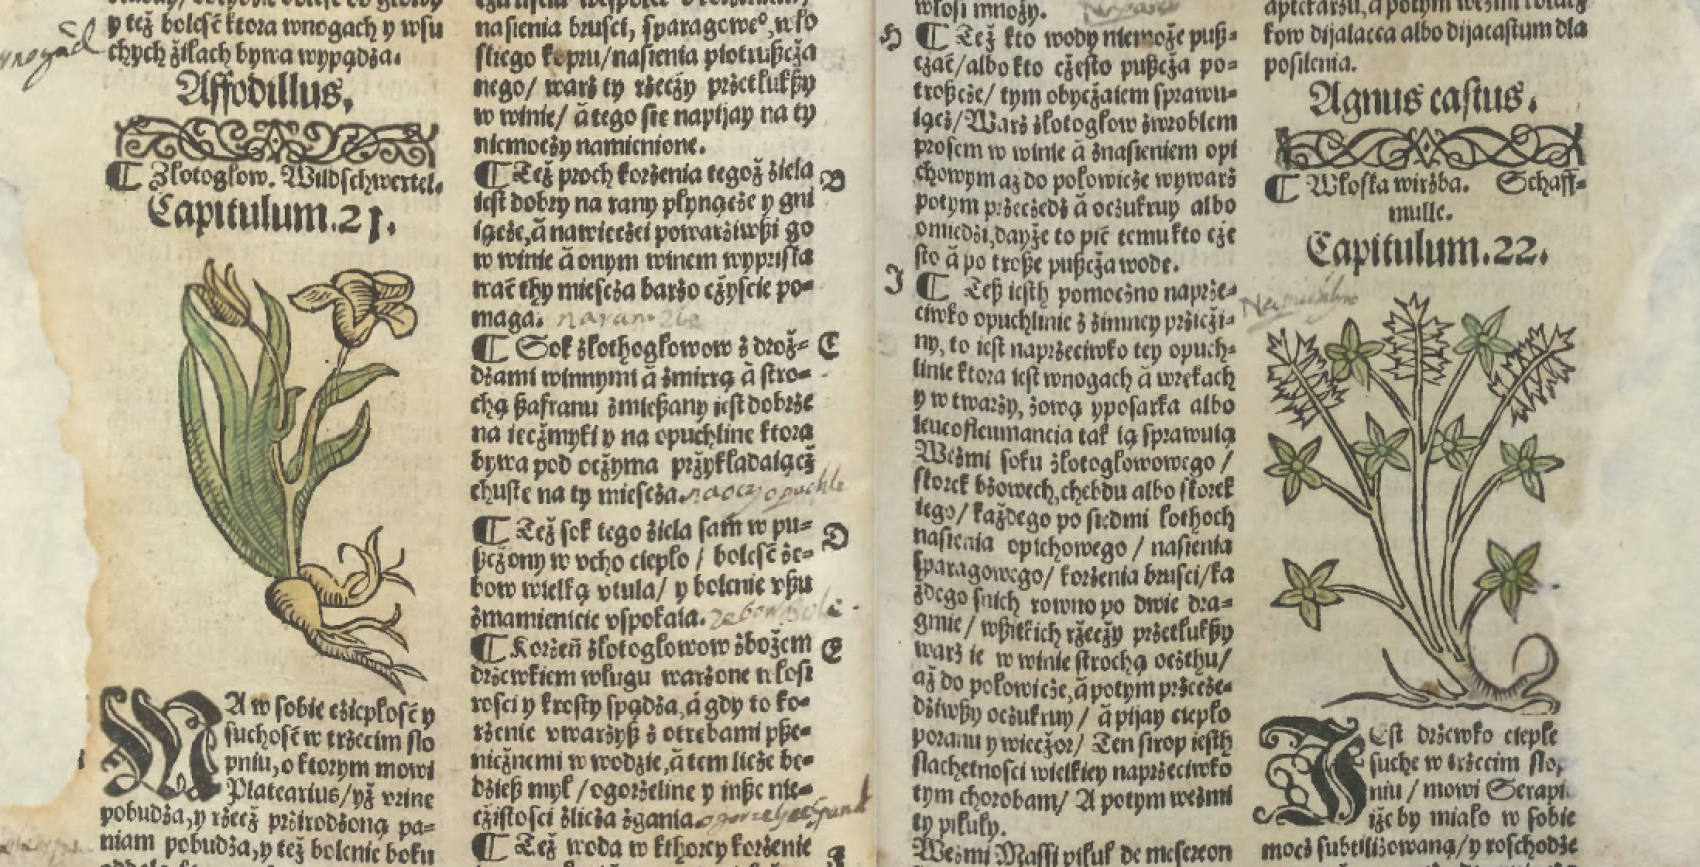 y też boleść ktora wnogach y wsu
chych żilach bywa wypądża.
Affodillus.
¶ Złotogłow. Wildschwertel.
Capitulum.21.
MA w sobie cżiepłość y
suchość w trżecim sto
pniu, o ktorym mowi
Platearius/yż vrine
pobudża, y rżecż przirodżoną pa⸗
niam pobudża, y też bolenie boku
nasienia brusci, sparagoweº, wło
skiego kopru/nasienia piotrużcża
nego/ warż ty rżecży przetłukßy
w winie/ á tego sie napijay na ty
niemoczy namienione.
¶ Też proch korżenia tegoż żiela
iest dobry na rany płynącże y gni
iącże, á nawiecżei powarżiwßi go
w winie á onym winem wypłska
wać thy mieścża barżo cżyście po⸗
maga.
B
¶ Sok żłothogłowow ż droż⸗
dżami winnymi á żmirrą á stro⸗
chą ßafranu żmießany iest dobrże
na iecżmyki y na opuchline ktora
bywa pod ocżyma przykładaiącż
chuste na ty mieścża. na oczy opuchle
C
¶ Też sok tego żiela sam w pu⸗
ßcżony w vcho ciepło / boleść że⸗
bow wielką vtula/ y bolenie vßu
żmamienicie vspokaia.
D
¶ Korżeń żłotogłowow żbożem
drżewkiem wługu warżone włosi
rości y krosty spądża, á gdy to ko⸗
rżenie vwarżyß ż otrębami pße⸗
nicżnemi w wodżie, á tem licże be⸗
dżieß myk /ogorżeline y inße nie⸗
cżistości żlicża żgania.
E
¶ Też woda w kthorey korżenie
włosi mnoży.
H
¶ Też kto wody niemoże puß⸗
cżać/albo kto cżesto pußcża po⸗
troßcże/ tym obycżaiem sprawu⸗
iącż/Warż żłotogłow żwroblem
prosem w winie á żnasieniem opi
chowym aż do połowicże wywarż
potym przecżedż á ocżukruy albo
omiedżi, dayże to pić temu kto cżę
sto á po troße pußcża wode.
I
¶ Teß iesth pomocżno naprże⸗
ciwko opuchlinie ż żimney prżicżi⸗
ny, to iest naprżeciwko tey opuch⸗
linie ktora iest wnogach á wrekach
y w twarży, żową yposarka albo
leucofleumancia tak ią sprawuią
Weżmi soku żłotogłowowego /
skorek bżowech, chebdu albo skorek
iego/ każdego po siedmi łothoch
nasienia opichowego / nasienia
sparagowego/ korżenia brusci/ka
żdego snich rowno po dwie dra⸗
gmie/ wßitkich rżecży przetłukßy
warż ie w winie strochą ocżthu/
aż do połowicże, á potym przecże⸗
dżiwßy ocżukruy/ á pijay ciepło
poranu y wiecżor/ Ten sirop iesth
slachetnosci wielkiey naprżeciwko
tym chorobam/ A potym weżmi
ty pikuły.
Weżmi Massi pikuł de mesereon
aptekarżu, á potym weżmi
kow dijalacca albo dijacastum dla
posilenia.
Agnus castus.
¶ Włoska wirżba. Schaff⸗
mulle.
Capitulum.22.
IEst drżewko ciepłe
suche w trżecim stop
niu / mowi Serapi
iże by miało w sobie
mocż subtiliżowaną/ y roschodże